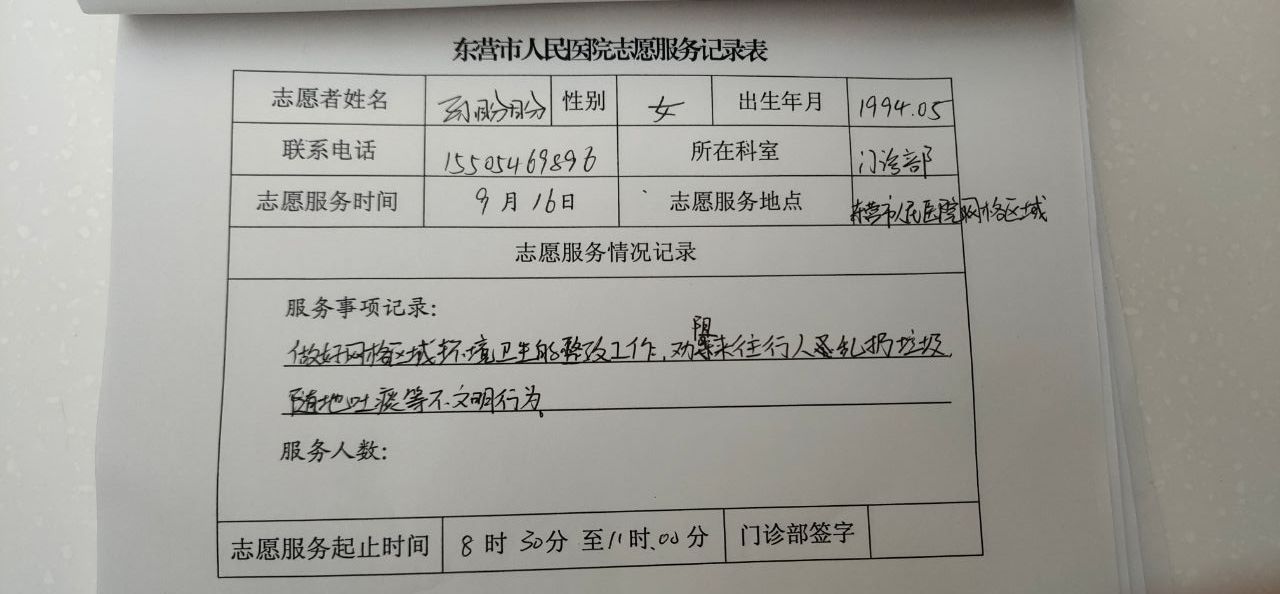 东营市人民医院志愿服务记录表
志愿者姓名 性别 女 出生年月 1994.05
联系电话 15505469896 所在科室 门诊部
志愿服务时间 9月16日 志愿服务地点 东营市人民医院网格区域
志愿服务情况记录
服务事项记录:
做好网格区域环境卫生的整改工作,劝阻来往行人乱扔垃圾,
随地吐痰等不文明行为。
服务人数:
志愿服务起止时间 8时30分至11时.00分 门诊部签字